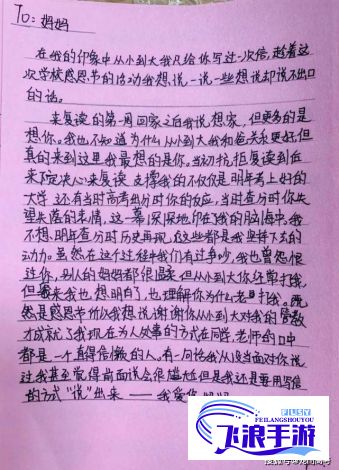 To: 妈妈
在我的印象中从小到大我只给你写过一次信,趁着这
次学校感恩节的活动我想说一说一些想说却说不出口
的话。
来复读的第一周回家之后我说想家,但更多的是
想你。我也不知道为什么从小到大我和爸关系更好,但
真的来到这里我最想的是你。当初抗拒复读到后
来下定决心来复读,支撑我的不仅仅是明年考上好的
大学 还有当时高考出分时你的反应,当时查分时你失
望失落的表情,这一幕深深地印在我的脑海中,我
不想明年查分时历史再现,这些都是我坚持下去的
动力。虽然在这个过程中我们有过争吵,我也曾怨恨
过你,别人的妈妈都很温柔但从小到大你经常打我,
但 来我也想明白了,也理解你为什么老 打我。既
然是感恩节所以我想说谢谢你从小到大对我的管教
才成就了我现在为人处事的方式在同学,老师的口中
都是一个真得信赖的人。有一句话我从没当面对你说
过我甚至觉得前面说会很尴尬但是我还是要用写信
的方式"说"出来 —— 我爱你
PLSY
飞浪手游
FEILANGSHOUYOU